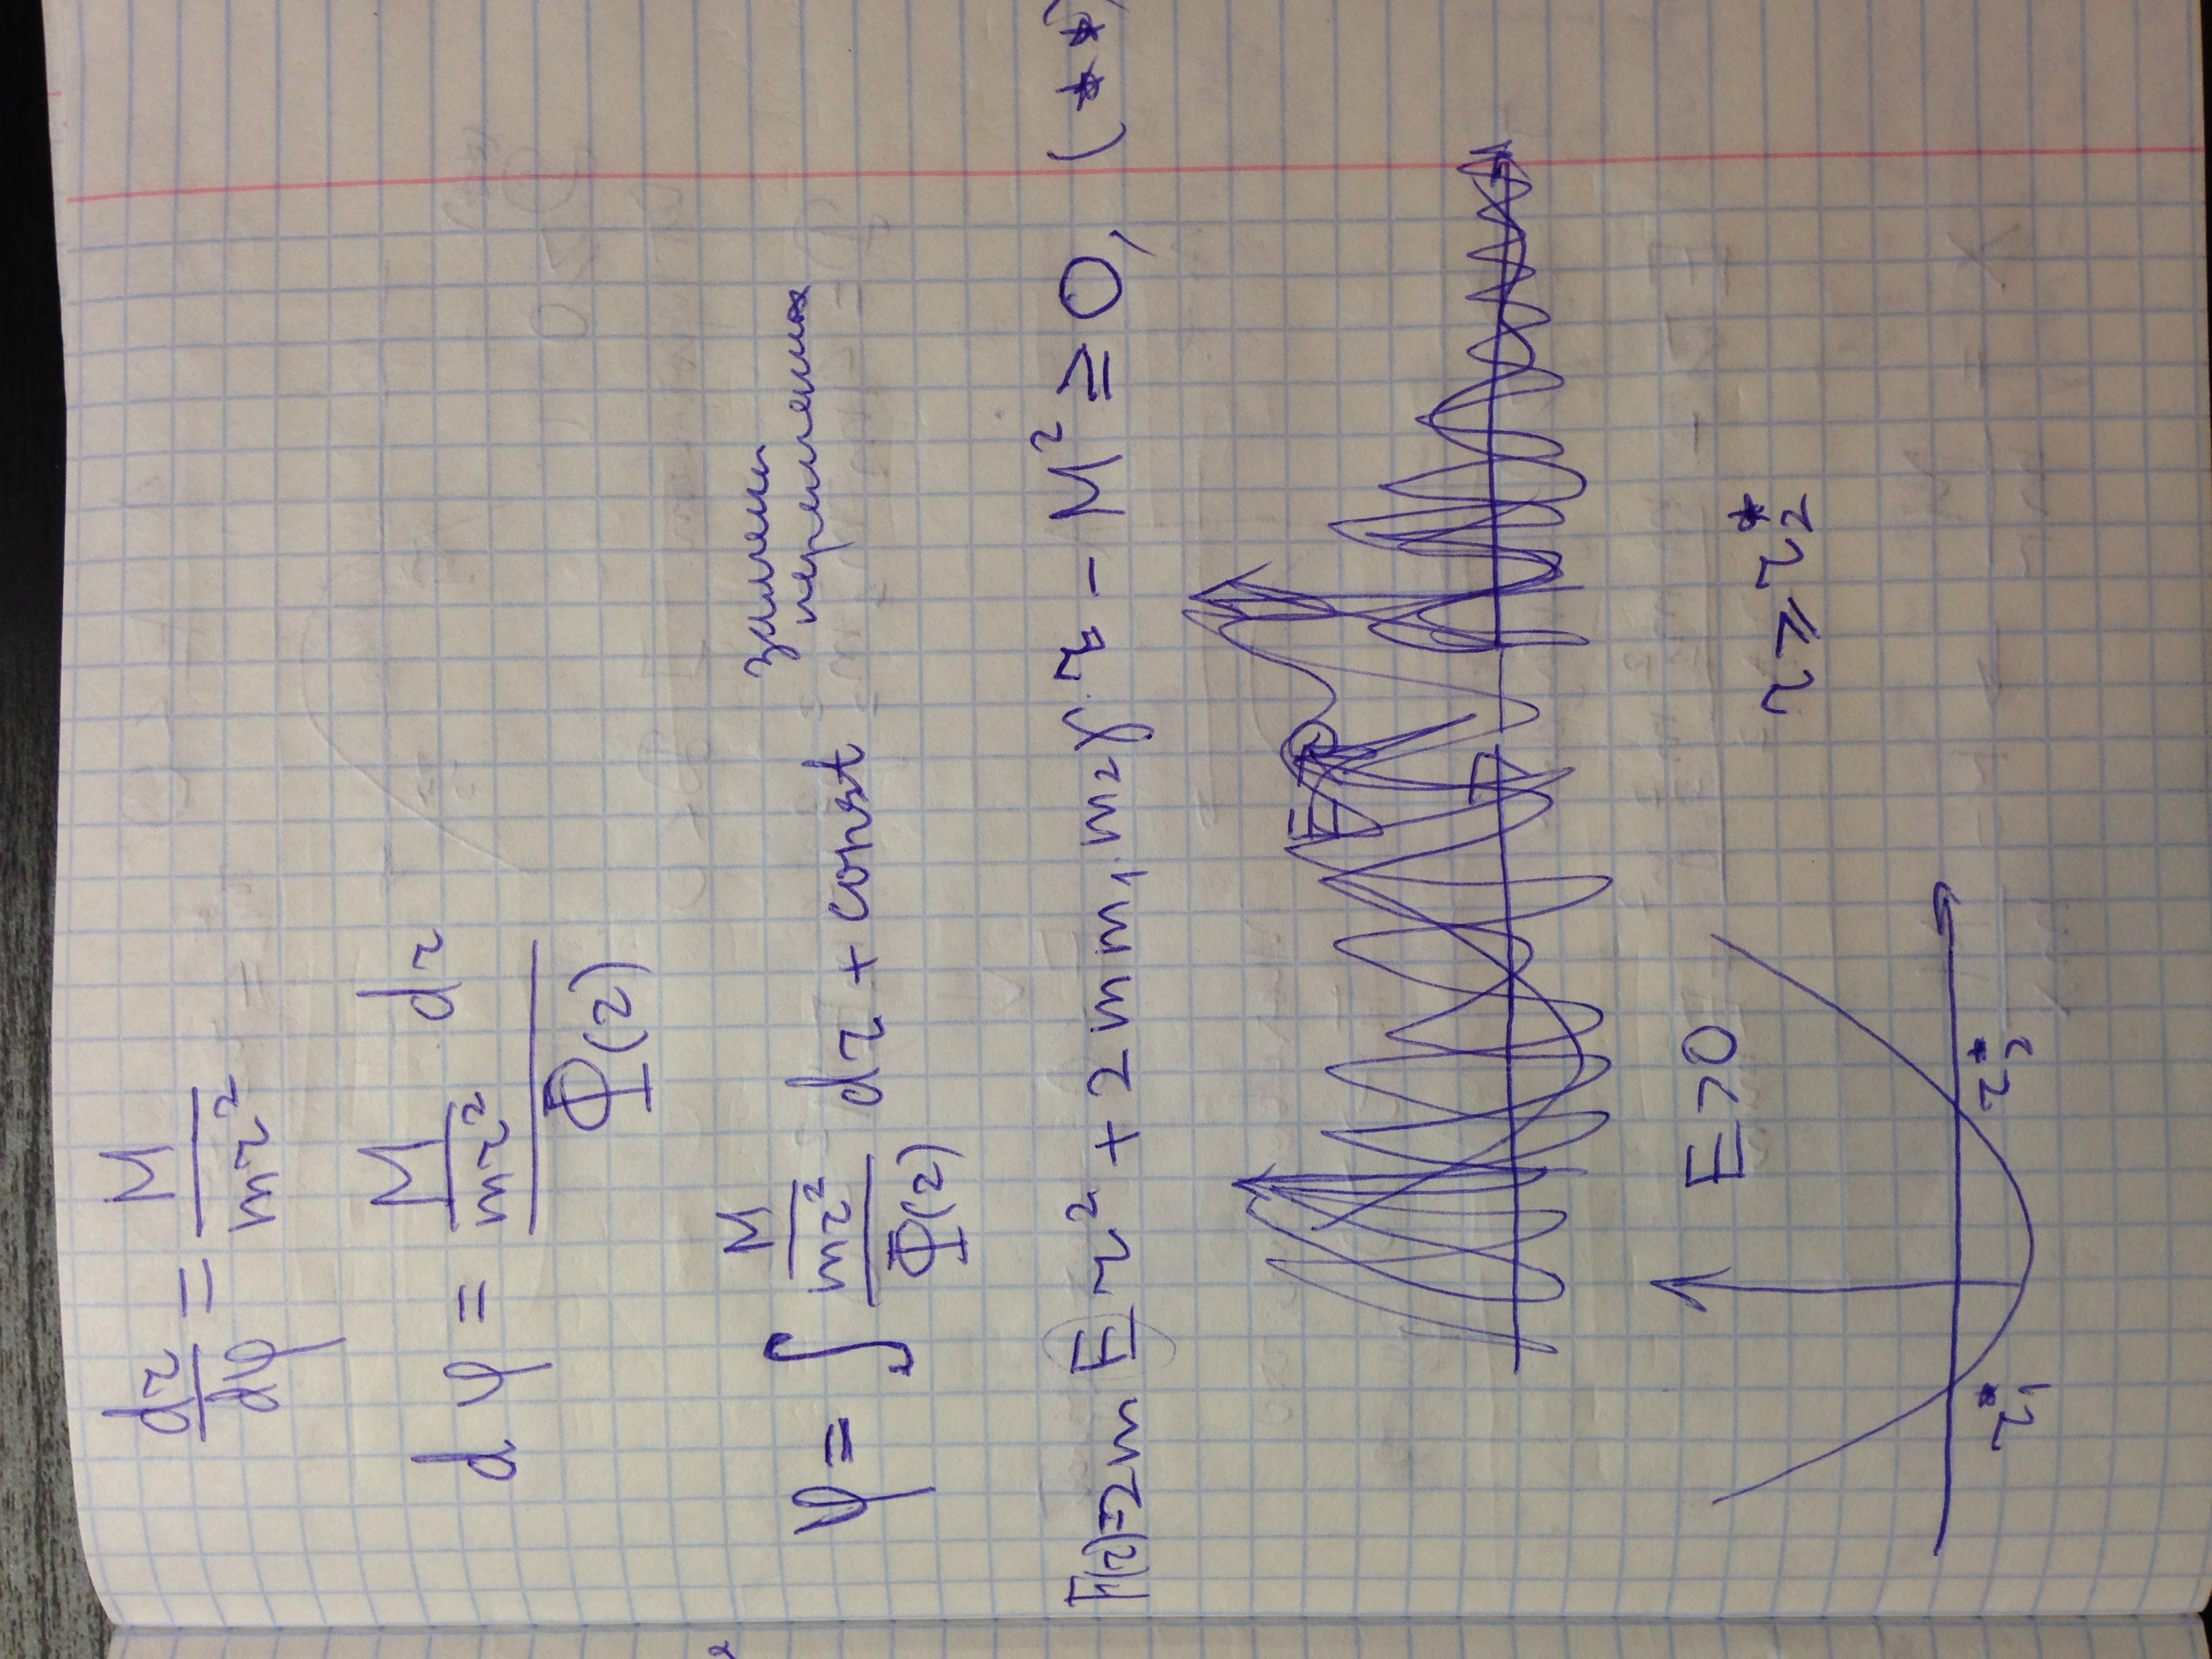 dr/dφ = M/(mr²)
dφ = (M/(mr²))/Φ(r) dr
φ = ∫ (M/(mr²))/Φ(r) dr + const
замени
переменная
F(r)=2mEr² + 2mm₁m₂γ·r - M² ≥ 0, (**)
E
E>0
r ≥ r₂*
r₁* r₂*